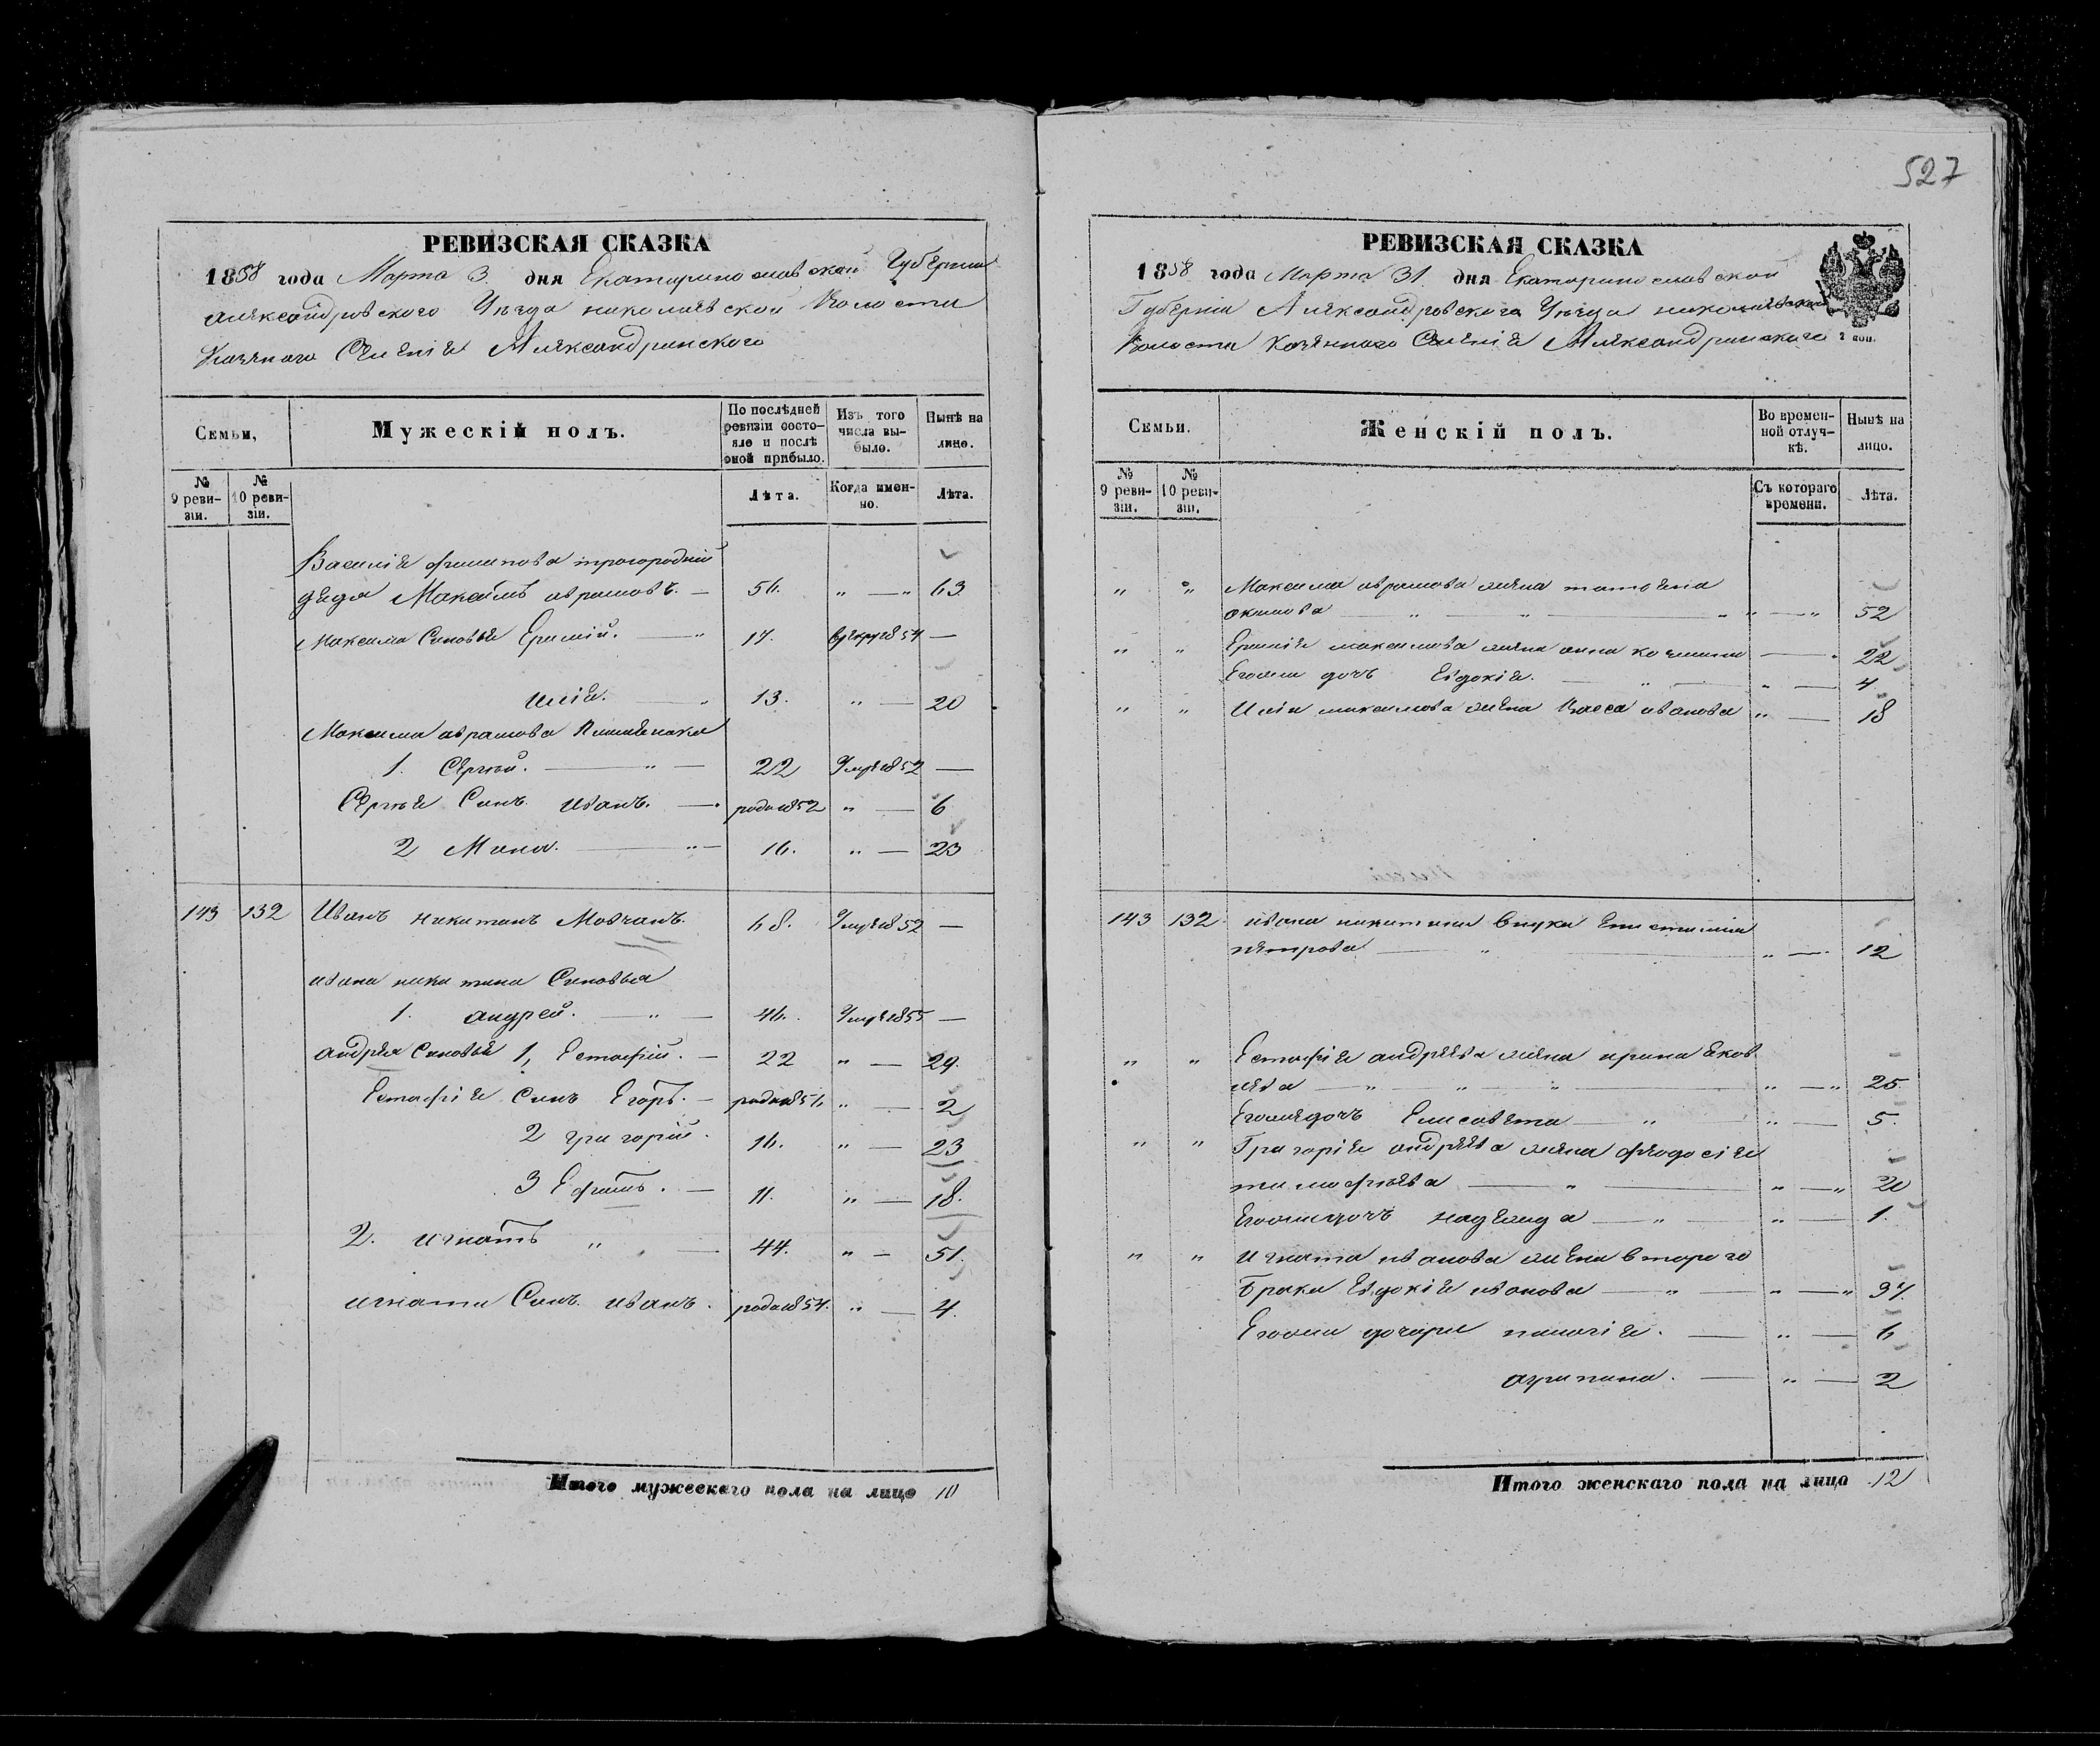 527
РЕВИЗСКАЯ СКАЗКА
1858 года Марта 3. дня Екатеринославской Губернии
Александровского Уезда николаевской Волости
Казенаго Селенія Александринского
Семьи,
Мужескій полъ.
По послѣдней ревизіи состояло и послѣ оной прибыло.
Изъ того числа выбыло.
Нынѣ на лицо.
№ 9 ревизіи.
№ 10 ревизіи.
Лѣта.
Когда именно.
Лѣта.
Василія Филипова троюродній
дядя Максимъ аврамовъ. — 56. " — " 63
Максима Сыновья Еримій. — " 17. 1854 —
илія. — " 13. " — 20
Максима аврамова племеника
1. Сергѣй. — " — 22 Умре 1852 —
Сергѣя Сынъ иванъ. — родил 1852 " — 6
2 Мина. — " — 16. " — 23
143 132 Иванъ никитинъ Мовчанъ. 68. Умре 1852 —
ивана никитина Сыновья
1. андрей. — " — 46. Умре 1855 —
андрея Сыновья 1, Естафій. — 22 " — 29.
Естафія Сынъ Егоръ. — родил 1856 " — 2
2 григорій. 16. " — 23
3 Ефимъ. — 11. " — 18.
2. игнатъ " — 44. " — 51.
игната Сынъ иванъ. родил 1854. " — 4.
Итого мужескаго пола на лицо 10
РЕВИЗСКАЯ СКАЗКА
1858 года Марта 31. дня Екатеринославской
Губерніи Александровскаго Уезда николаевской
Волости Казеннаго Селенія Александринскаго
Семьи.
Женскій полъ.
Во временной отлучкѣ.
Нынѣ на лицо.
№ 9 ревизіи.
№ 10 ревизіи.
Съ котораго времени.
Лѣта.
" " Максима аврамова жена татьяна
акимова — " — " — " " — " 52
" " Еримія максимова жена анна козмина — " 22
Егоже дочь Евдокія. — " — " — 4
" " Иліи максимова жена Васса иванова " — 18
143 132. ивана никитина внука Епистимія
петрова — " — " — 12
" " Естафія андреева жена ирина яков
лева — " — " — " — " — " 25.
Егоже дочь Елисавета — " — " — 5.
" " Григорія андреева жена феодосія
тимофѣева — " — " — " 20
Егоже дочь надежда — " — " — 1.
" " игната иванова жена второго
брака Евдокія иванова — " — " — " 37.
Егоже дочери пелагія. — " — 6
агрипина. — " — 2
Итого женскаго пола на лицо 12